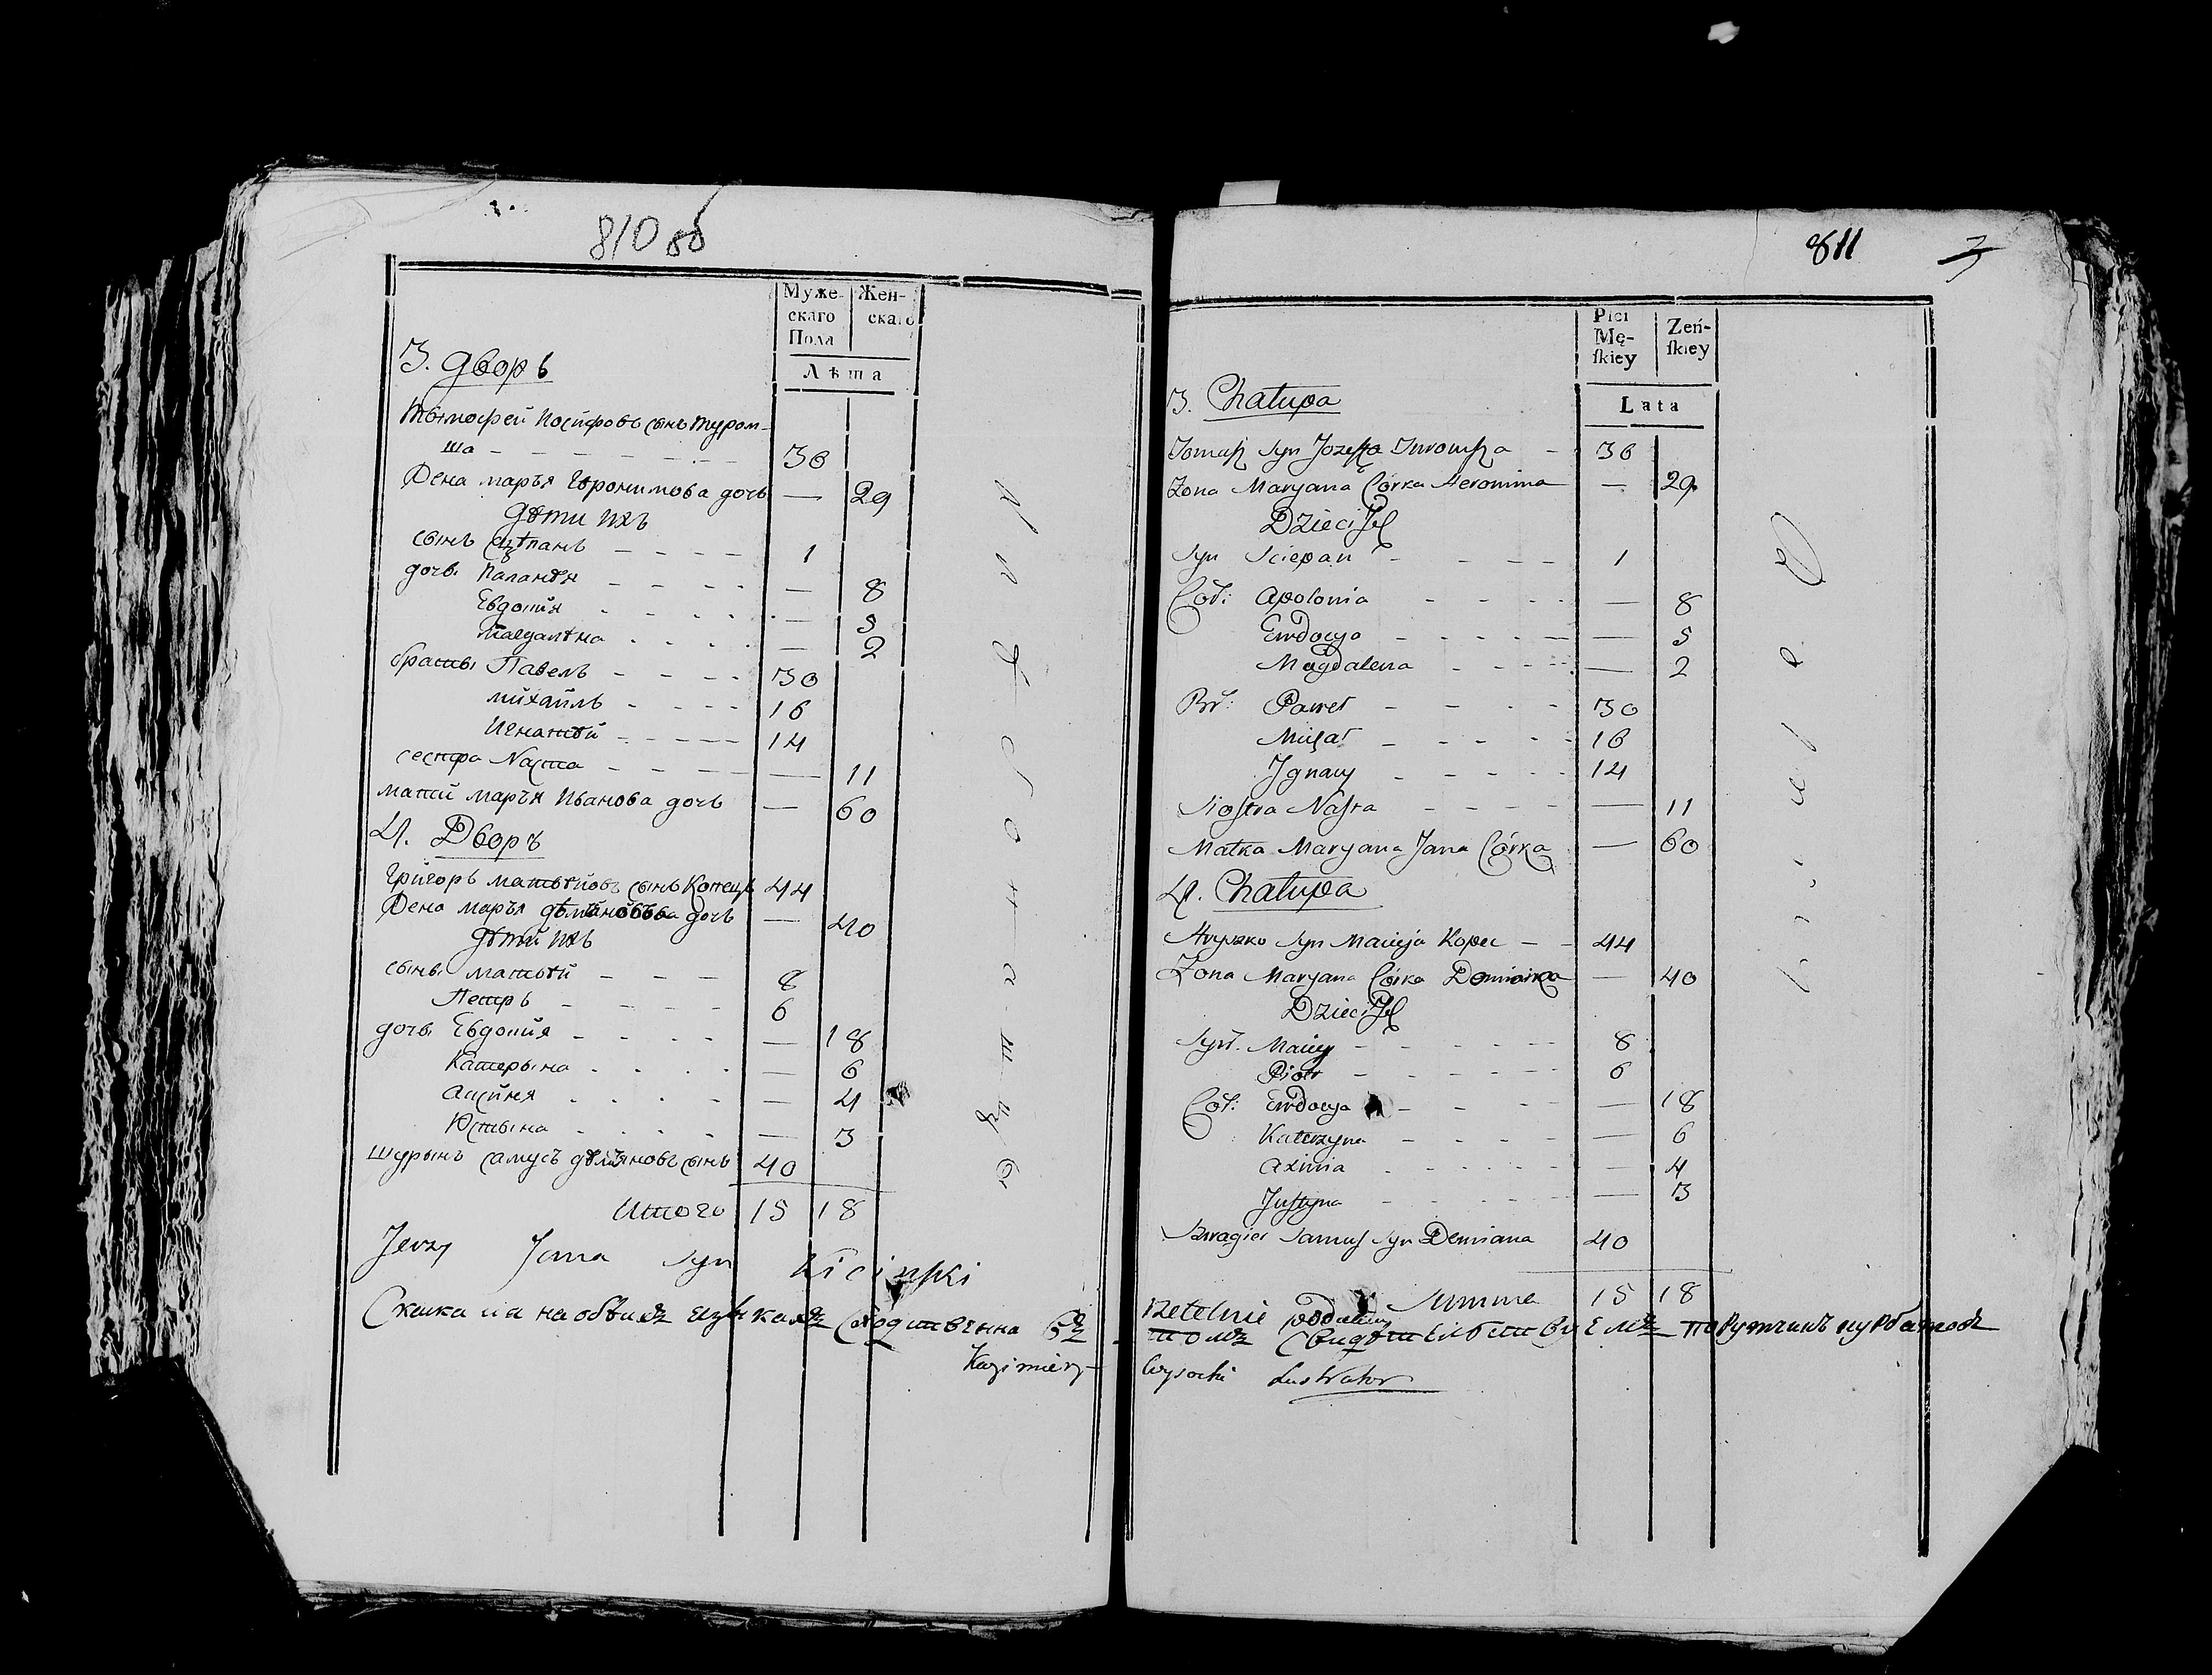 810 об
Муже-
скаго
Пола
Жен-
скаго
Лѣта
3. Дворъ
Тымофей Иосифовъ сынъ Туром-
ша 36
Жена марья Геронимова дочь — 29
дѣти ихъ
сынъ Сцѣпанъ 1
дочь Паланѣя — 8
Евдокия — 5
— 2
братьи Павелъ 30
михайлъ 16
Игнатѣй 14
сестра Наста — 11
мать марья Иванова дочь — 60
4. Дворъ
Григоръ матвѣйовъ сынъ Копецъ 44
Жена марья дочь — 40
дѣти ихъ
сынь матвѣй 8
Петръ 6
дочь Евдокия — 18
Катерына — 6
— 4
Юстына — 3
Шурынъ Самусъ дѣмяновъ сынъ 40
Итого 15 18
Jerzy Jana syn Kicinski
Скаска на на обѣихъ языкахъ въ
Kazimierz
811
3
Płci
Mę-
ſkiey
Zeń-
ſkiey
Lata
3. Chałupa
Tomaſz Syn Jozefa Turomſza 36
Zona Maryana Córka Heronima — 29
Dzieci Jch
Syn Sciepan 1
Cór: Apolonia — 8
Ewdocya — 5
Magdalena — 2
Br: Paweł 30
Michał 16
Jgnacy 14
Sioſtra Naſta — 11
Matka Maryana Jana Córka — 60
4. Chałupa
Hryszko Syn Macieja Kopec 44
Zona Maryana Córka — 40
Dzieci Jch
Syn: Maciey 8
Piotr 6
Cór: Ewdocya — 18
Katerzyna — 6
Axinia — 4
Juſtyna — 3
Szwagier Samuſ Syn Demiana 40
Summa 15 18
Rzetelnie
томъ свидѣтельствуемъ порутчикъ
Wysocki Lustrator